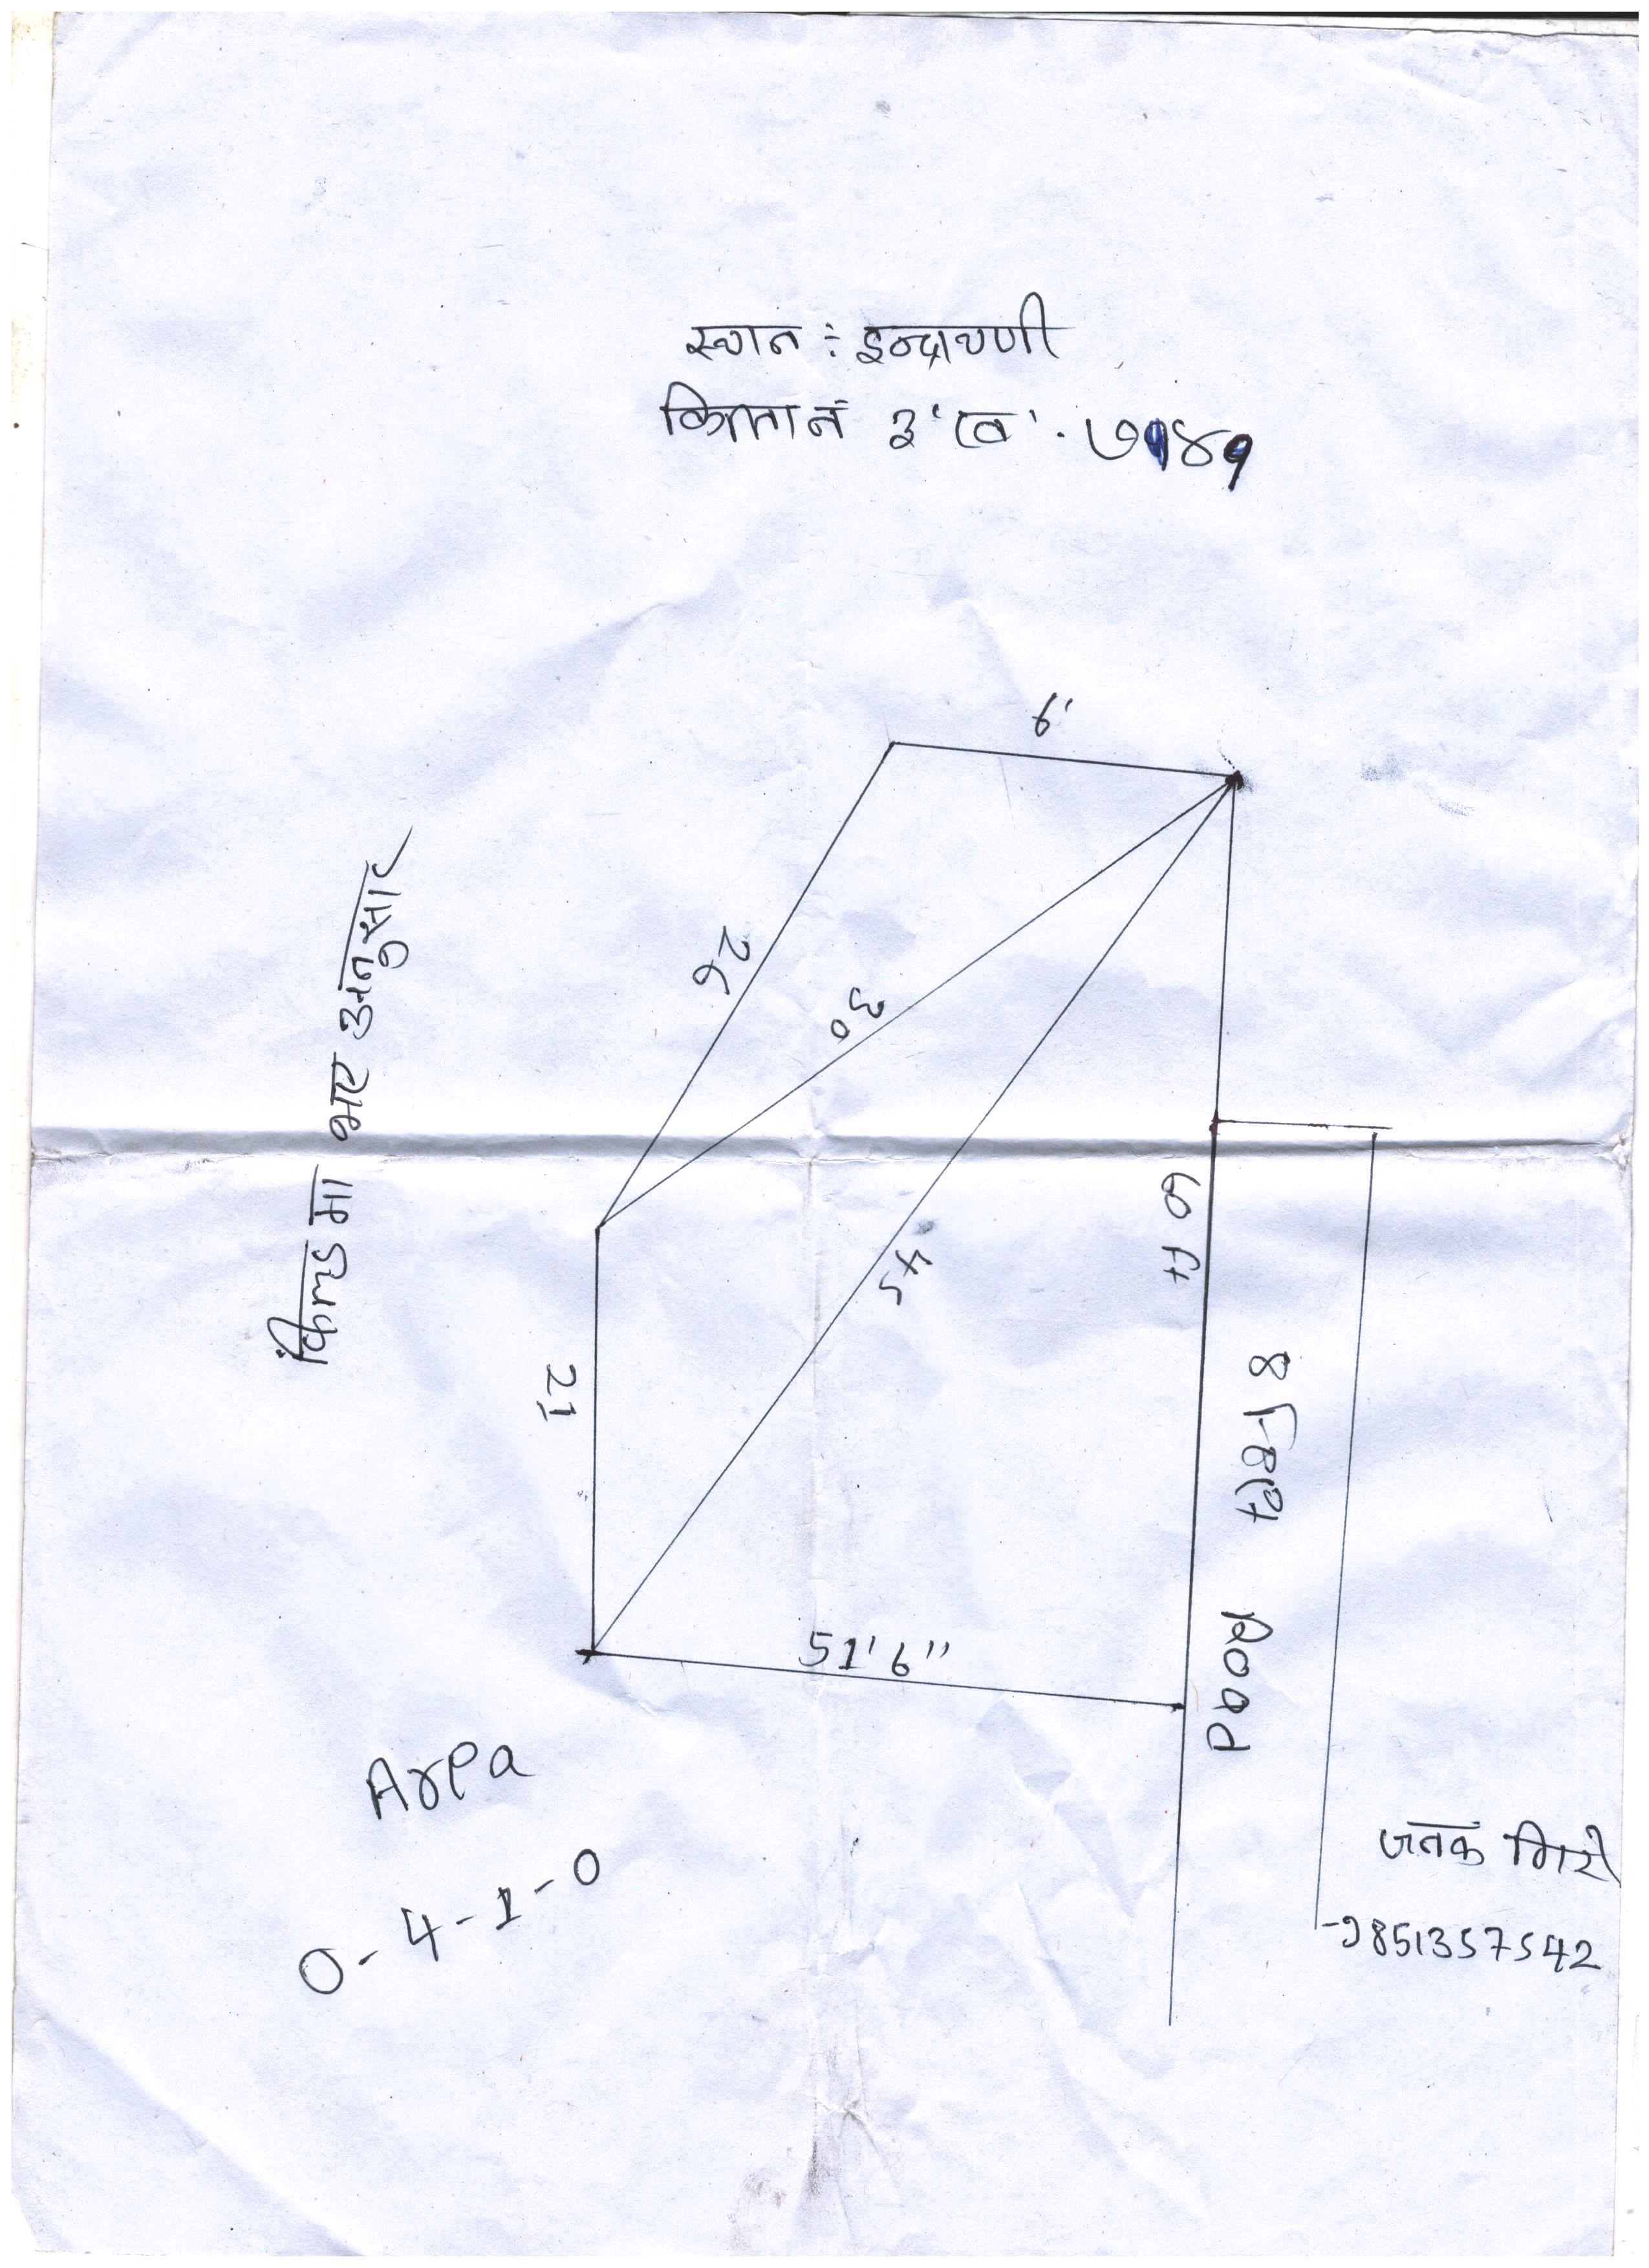 स्थान : इन्द्रायणी
कित्ता नं ३'ख'. ७१४१
6'
26
30
45
60 ft
21
51'6"
8 फिट Road
फिल्ड मा भए अनुसार
Area
0-4-1-0
जनक गिरी
-9851357542